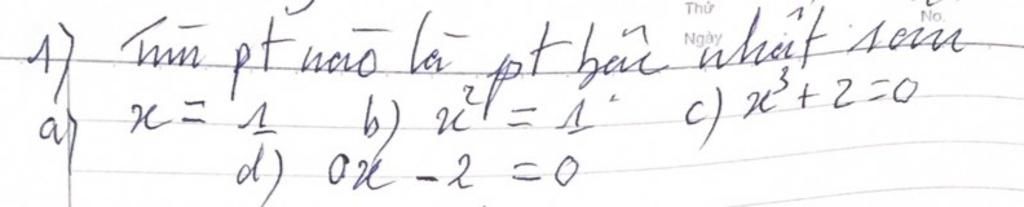 Thứ
Ngày
No.
1) Tìm pt nào là pt bậc nhất
a) x = 1 b) x² = 1 c) x³ + 2 = 0
d) 0x - 2 = 0